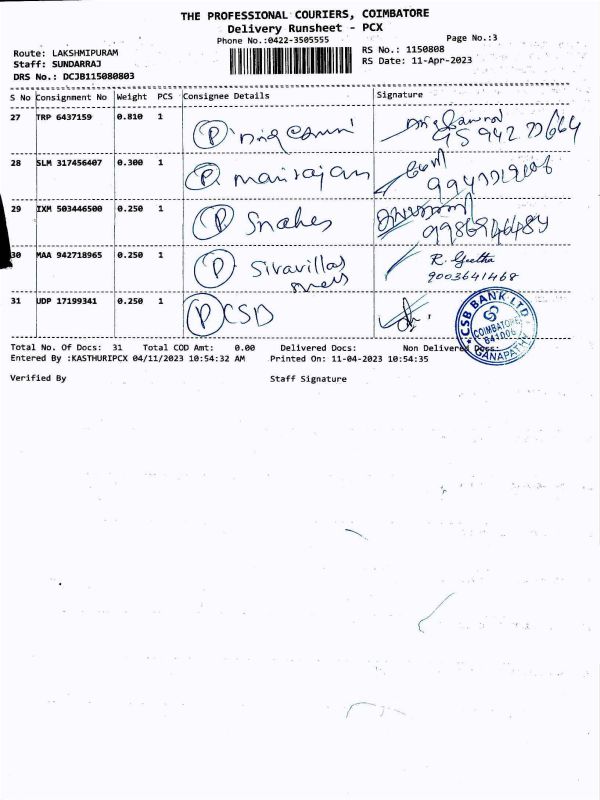 THE PROFESSIONAL COURIERS, COIMBATORE
Delivery Runsheet - PCX
Phone No.:0422-3505555
Page No.:3
Route: LAKSHMIPURAM
RS No.: 1150808
Staff: SUNDARRAJ
RS Date: 11-Apr-2023
DRS No.: DCJB115080803
S No Consignment No Weight PCS Consignee Details Signature
27 TRP 6437159 0.810 1 P
28 SLM 317456407 0.300 1 P
29 IXM 503446500 0.250 1 P
30 MAA 942718965 0.250 1 P Sivavillas R. Geetha
9003641468
31 UDP 17199341 0.250 1 P CSD
CSB BANK LTD
COIMBATORE
641006
GANAPATHY
Total No. Of Docs: 31 Total COD Amt: 0.00 Delivered Docs: Non Delivered Docs:
Entered By :KASTHURIPCX 04/11/2023 10:54:32 AM Printed On: 11-04-2023 10:54:35
Verified By Staff Signature